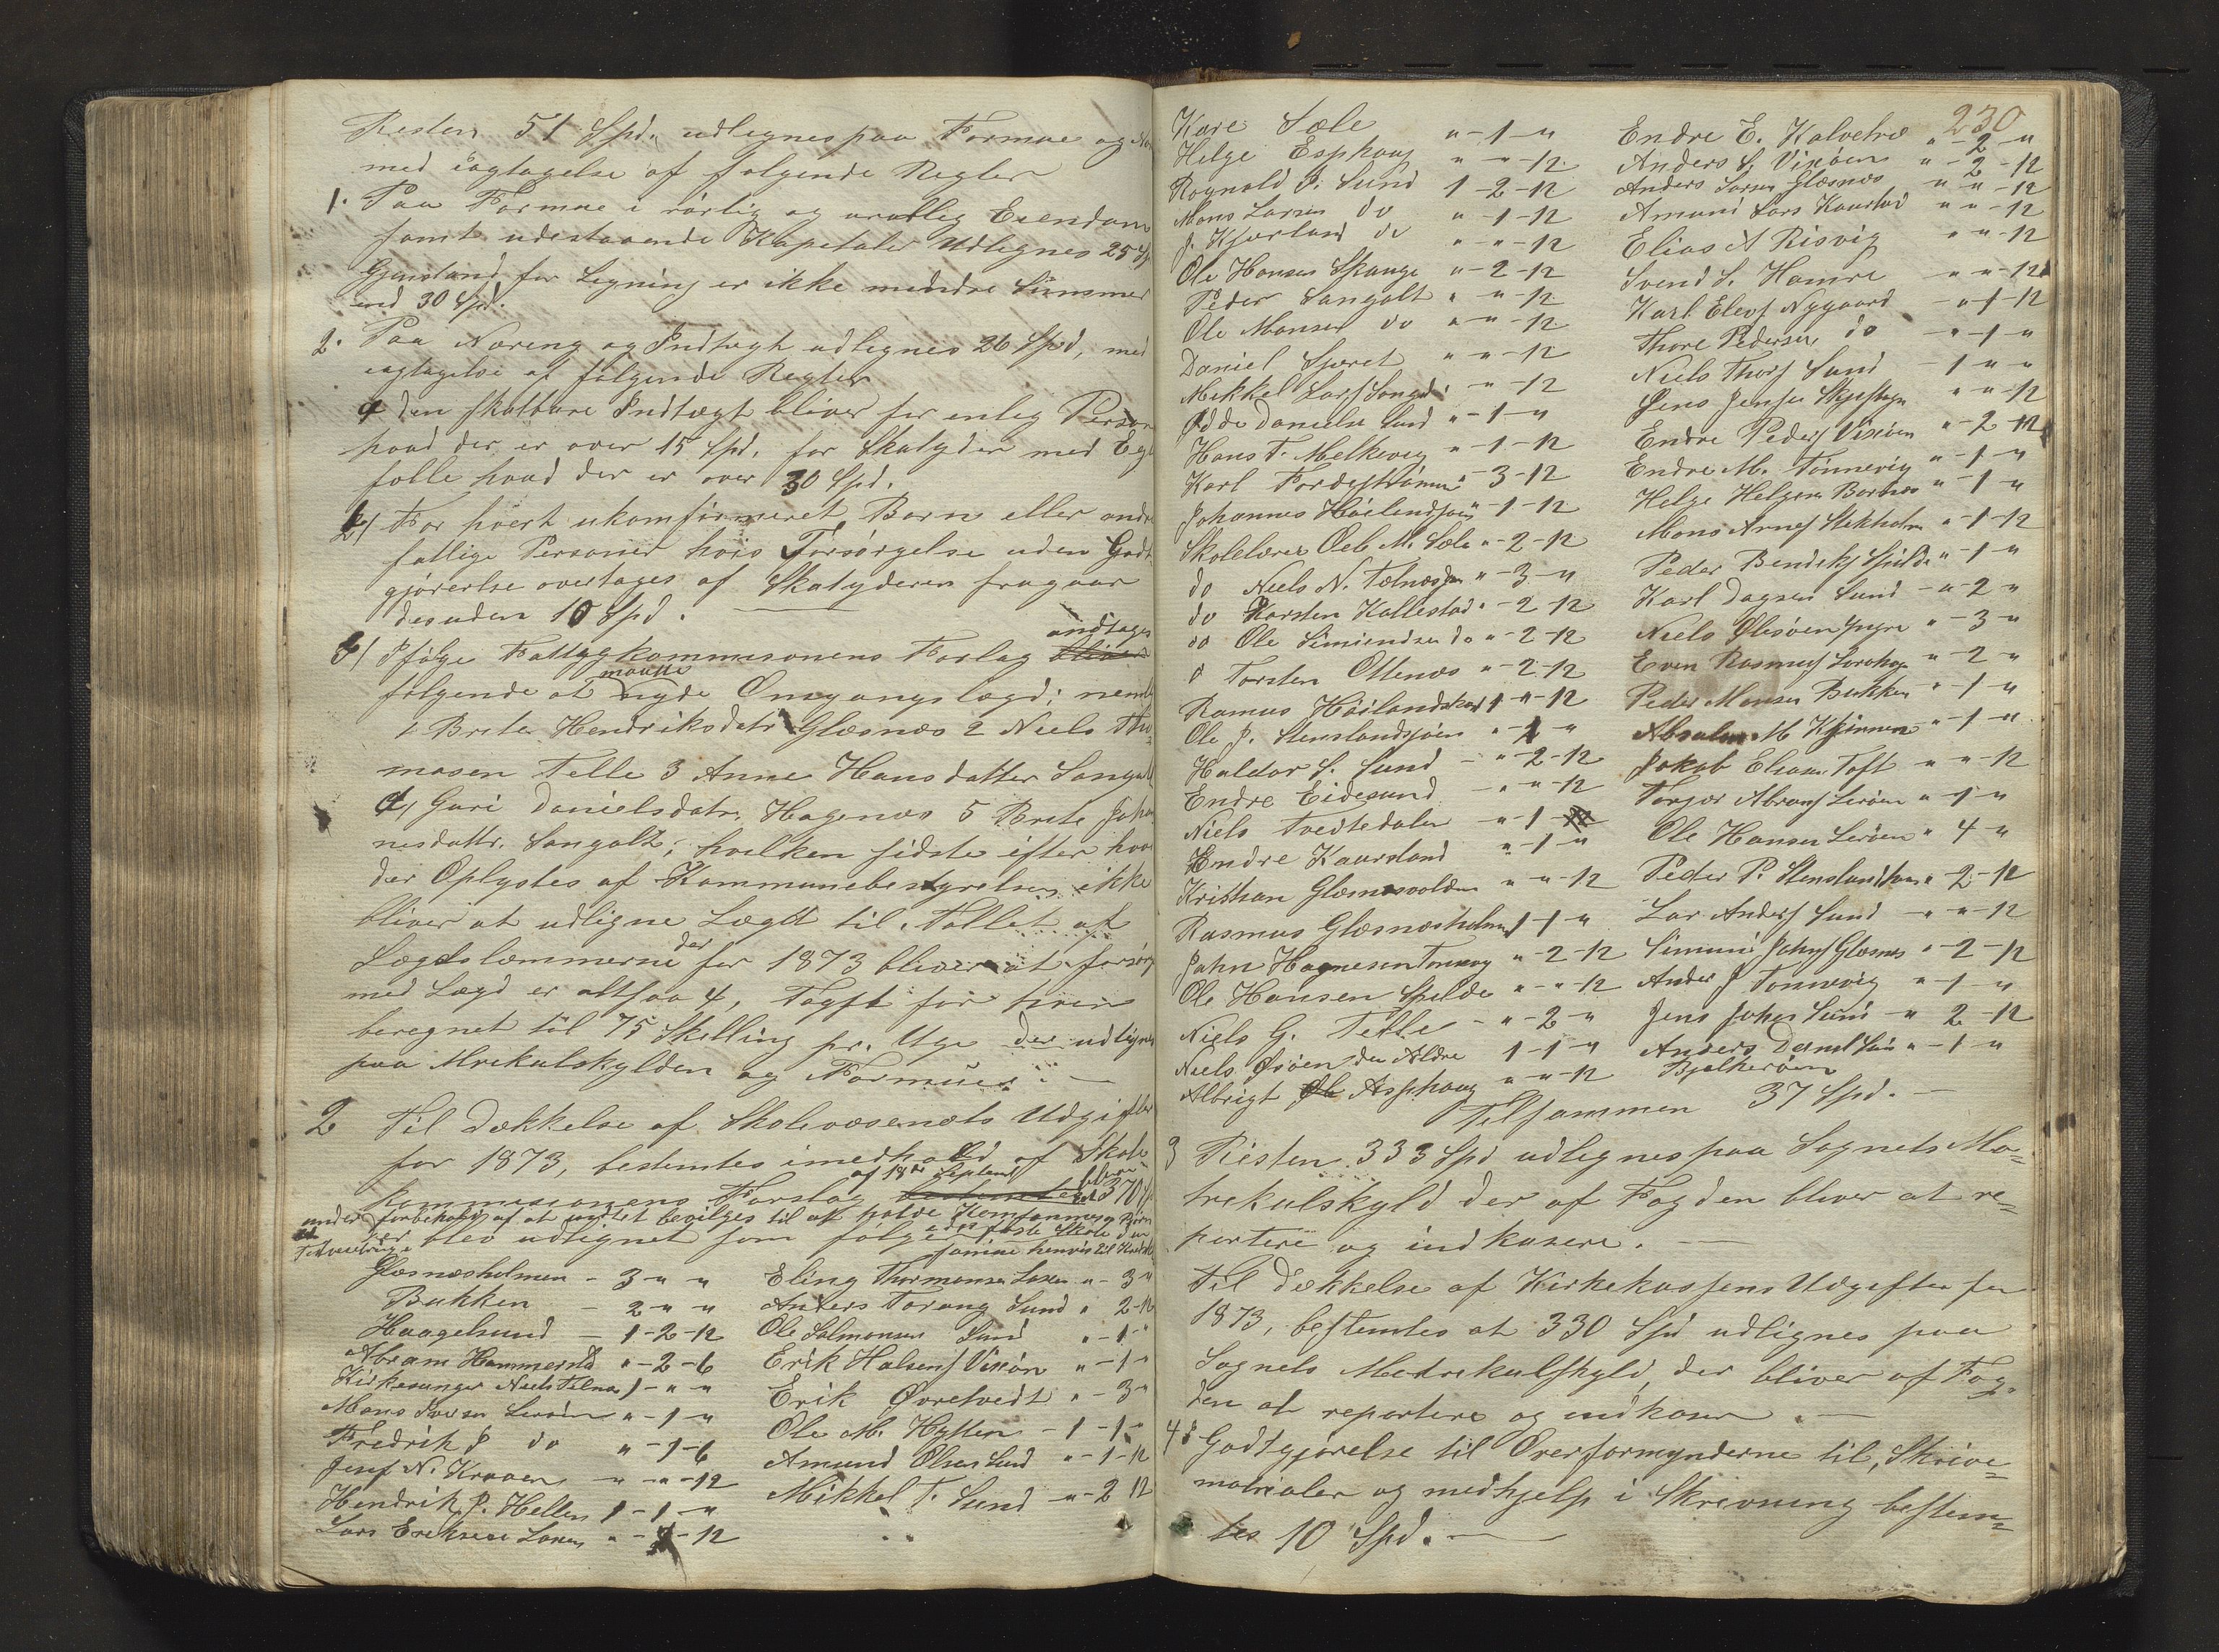 Resten 51 Spd. udlignes paa Formue og
med iagtagelse af følgende Regler
1. Paa Formue i rørlig og urørlig Eiendom
samt udestaaende Kapitaler Udlignes 25 Sp
Gjenstand for Ligning er ikke mindre Summer
end 30 Spd.
2. Paa Næring og Indtægt udlignes 26 Spd, med
iagtagelse af følgende Regler
a den skatbare Indtægt bliver for enlig Person
hvad der er over 15 Spd. for Skatyder med Egte
folle hvad der er over 30 Spd.
b/ For hvert ukomfirmeret Barn eller andre
fattige Personer hvis Forsørgelse uden Godt
gjørerlse overtages af Skatyderen fragaar
desuden 10 Spd.
3/ Ifølge Fattigkommisonens Forlag bliver andtages
følgende at maatte nyde Omgangslægd; nemlig
1 Brita Hendriksdatr Glæsnæs 2 Niels Tho=
masen Telle 3 Anne Hansdatter Langøl
4/ Guri Danielsdatr. Hagenæs 5 Brita Joha
nesdattr. Langølt; hvilken sidste efter hva
der Oplystes af Kommunebestyrelsen ikke
bliver at udligne Lægd til. Tallet af
Lægdslemmerne der for 1873 bliver at forsørg
med Lægd er altsaa 4, Taxst for hver
beregnet til 75 Skilling pr. Uge der udligne
paa Mrekulskylden og Formues.
2 Til Dækkelse af Skolevæsenets Udgifter
for 1873, bestemtes imedhold af Skole
kommisionens Forslag af 18de Septemb bestemtes til 370
under forbehold af at intet bevilges til at holde
der blev udlignet som følger
Glæsnæsholmen - 3 - " - "
Bukken - 2 - " - "
Haagelsund - 1 - 2 - 12
Abram Hammersla " - 2 - 6
Kirkesanger Niels Telnæs 1 - " - "
Mons Iversen Lerøen " - 1 - "
Fredrik J do " - 1 - 6
Josef N. Kraaen " - " - 12
Hendrik J. Hellen 1 - 1 - "
Lars Eriksen Laxen " - 1 - 12
Eling Thormansen Laxen " - 3 "
Anders Forang Sund " 2 - 12
Ole Salmonsen Sund " - 1 - "
Erik Halsens Vixøen " - 1 - "
Erik Øvretvedt " - 3 "
Ole M. Hytten - 1 - 1 - "
Amund Olsen Sund " - 1 - 12
Mikkel T. Sund - " - 2 12
230
Kare Sæle " - 1 - "
Helge Esphaug " - " - 12
Rognald P. Sund 1 - 2 - 12
Mons Larsen do " - 1 - 12
J. Kjørland do " - " - 12
Ole Hansen Skauge " - 2 - 12
Peder Langølt " - " - 12
Ole Monsen do " - " - 12
Daniel Spæret " - " - 12
Mekkel Lars Langø " - " - 12
Odde Danielse Sund " - 1 - "
Hans T. Melkevig " - 1 - 12
Karl Fordestrømen " - 3 - 12
Johannes Høilandsjøen " - 1 - 12
Skolelærer Oeb M. Sæle " - 2 - 12
do Niels N. Telnæs " - 3 - "
do Karsten Kallestad " - 2 - 12
do Ole Simiendsen do " - 2 - 12
d Torsten Ottenæs " - 2 - 12
Ramus Høilandskar 1 " - 12
Ole J. Stenslandsjøen " - 1 "
Haldor S. Sund - " - 2 - 12
Endre Eidesund - " - " - 12
Niels Tvedtedalen - " - 1 - 12
Endre Kaursland " - 1 - "
Kristian Glæsnæsvolden " - " - 12
Rasmus Glæsnæsholmen 1 - 1 - "
John Hagnesen Tonnevig " - 2 - 12
Ole Hansen Spilde " - " - 12
Niels G. Telle - " - 2 - "
Niels Øsøen den Ældre 1 - 1 - "
Albrigt Ole Asphoug " - " - 12
Endre E. Kalvetræ " - 2 - "
Anders S. Vixøen " - 2 - 12
Anders Larsen Glæsnæs " - " - 12
Amund Lars Kaurlad " - " - 12
Elias A Risvig " - " - 12
Svend S. Hamre " - " - 12
Karl Elevs Nygaard - " - 1 - 12
Thore Pedersen do - " - 1 - "
Niels Thors Sund - 1 - " - "
Jens Jensen " - " - 12
Endre Peders Vixøen " - 2 - 12
Endre M. Tønnevig " - 1 - "
Helge Helgesen Bornæs " - 1 - "
Mons Arnes Stekholm " - 1 - 12
Peder Bendiks Spilde " - 1 - "
Karl Dagsen Sund - " - 2 - "
Niels Øksøen yngre " - 3 - "
Even Rasmus " - 2 - "
Peder Monsen Bukken " - 1 - "
Absalon M Kjønnen " - 1 - "
Jakob Eliasen Toft " - " - 12
Torger Abrams Lerøen " - 1 - "
Ole Hansen Lerøen " 4 - "
Peder P. Stensland " - 2 - 12
Lar Anders Sund - " - " - 12
Simund Johns Glæsnæs " - 2 - 12
Ander J Tonnevig " - 1 - "
Jens Johan Sund - " 2 - 12
Anders Danielsen " - 1 - "
Bjelkerøen
Tilsammen 37 Spd. -
3 Resten 333 Spd udlignes paa Sognets Ma=
trekulskyld der af Fogden bliver at re=
partere og indkasere.
Til Dækkelse af Kirkekassens Udgifter for
1873, bestemtes at 330 Spd udlignes paa
Sognets Matrekulskyld, der bliver af Fog=
den at repartere og indkaser.
4 Godtgjørelse til Overformynderne til, Skrive=
matrialer og medhjelp i Skrivning bestem=
tes 10 Spd.